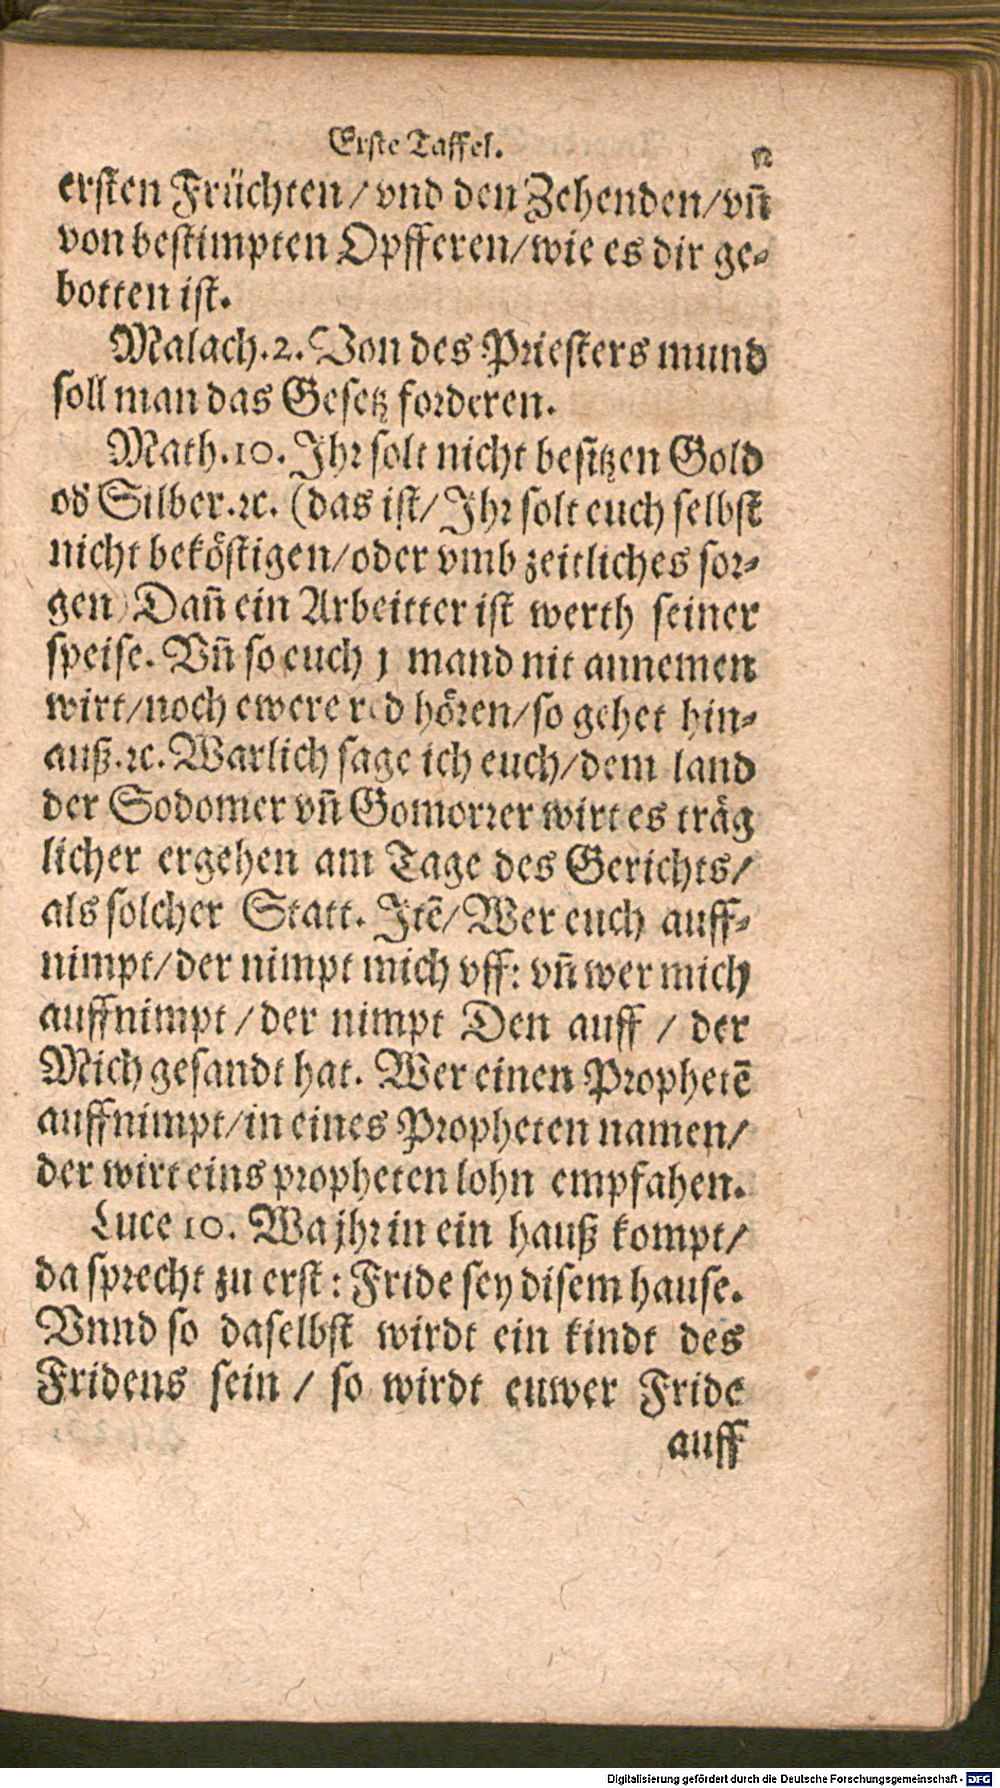 Erste Taffel.
ersten Früchten/ vnd den Zehenden/vñ
von bestimpten Opfferen/wie es dir ge-
botten ist.
Malach.2. Von des Priesters mund
soll man das Gesetz forderen.
Math.10. Jhr solt nicht besitzen Gold
od Silber.ꝛc. (das ist/ Jhr solt euch selbst
nicht beköstigen/oder vmb zeitliches sor-
gen) Dañ ein Arbeitter ist werth seiner
speise. Vñ so euch j mand nit annemen
wirt/noch ewere red hören/so gehet hin-
auß.ꝛc. Warlich sage ich euch/dem land
der Sodomer vñ Gomorrer wirt es träg
licher ergehen am Tage des Gerichts/
als solcher Statt. Jtẽ/ Wer euch auff-
nimpt/der nimpt mich vff: vñ wer mich
auffnimpt /der nimpt Den auff / der
Mich gesandt hat. Wer einen Prophetẽ
auffnimpt/in eines Propheten namen/
der wirt eins propheten lohn empfahen.
Luce 10. Wa jhr in ein hauß kompt/
da sprecht zu erst: Fride sey disem hause.
Vnnd so daselbst wirdt ein kindt des
Fridens sein / so wirdt euwer Fride
auff
Digitalisierung gefördert durch die Deutsche Forschungsgemeinschaft - DFG